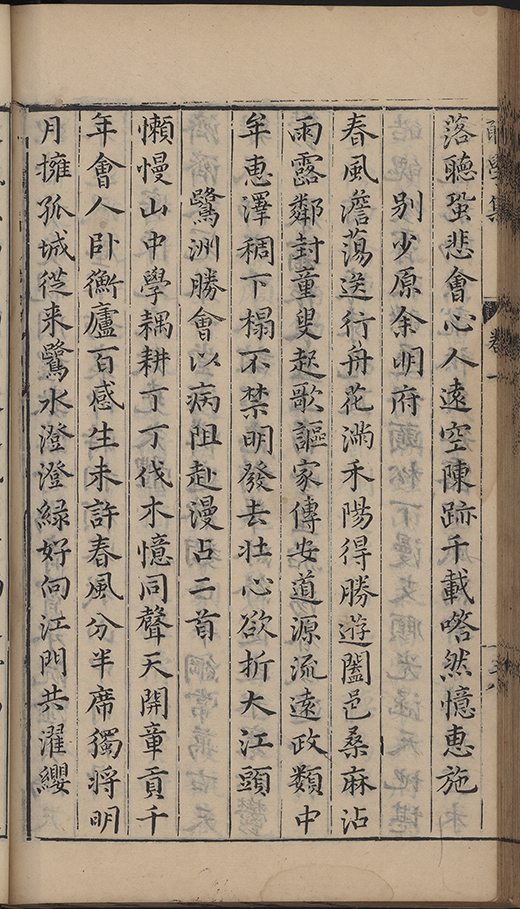 落聽蛩悲會心人遠空陳跡千載喀然憶惠施
別少原余明府
春風澹蕩送行舟花滿禾陽得勝遊闔邑桑麻沾
雨露鄰封童叟起歌謳家傳安道源流遠政類中
牟惠澤稠下榻不禁明發去壯心欲折大江頭
鷺洲勝會以病阻赴漫占二首
懶慢山中學耦耕丁丁伐木憶同聲天開章貢千
年會人臥衡廬百感生未許春風分半席獨將明
月擁孤城從來鷺水澄澄綠好向江門共濯纓